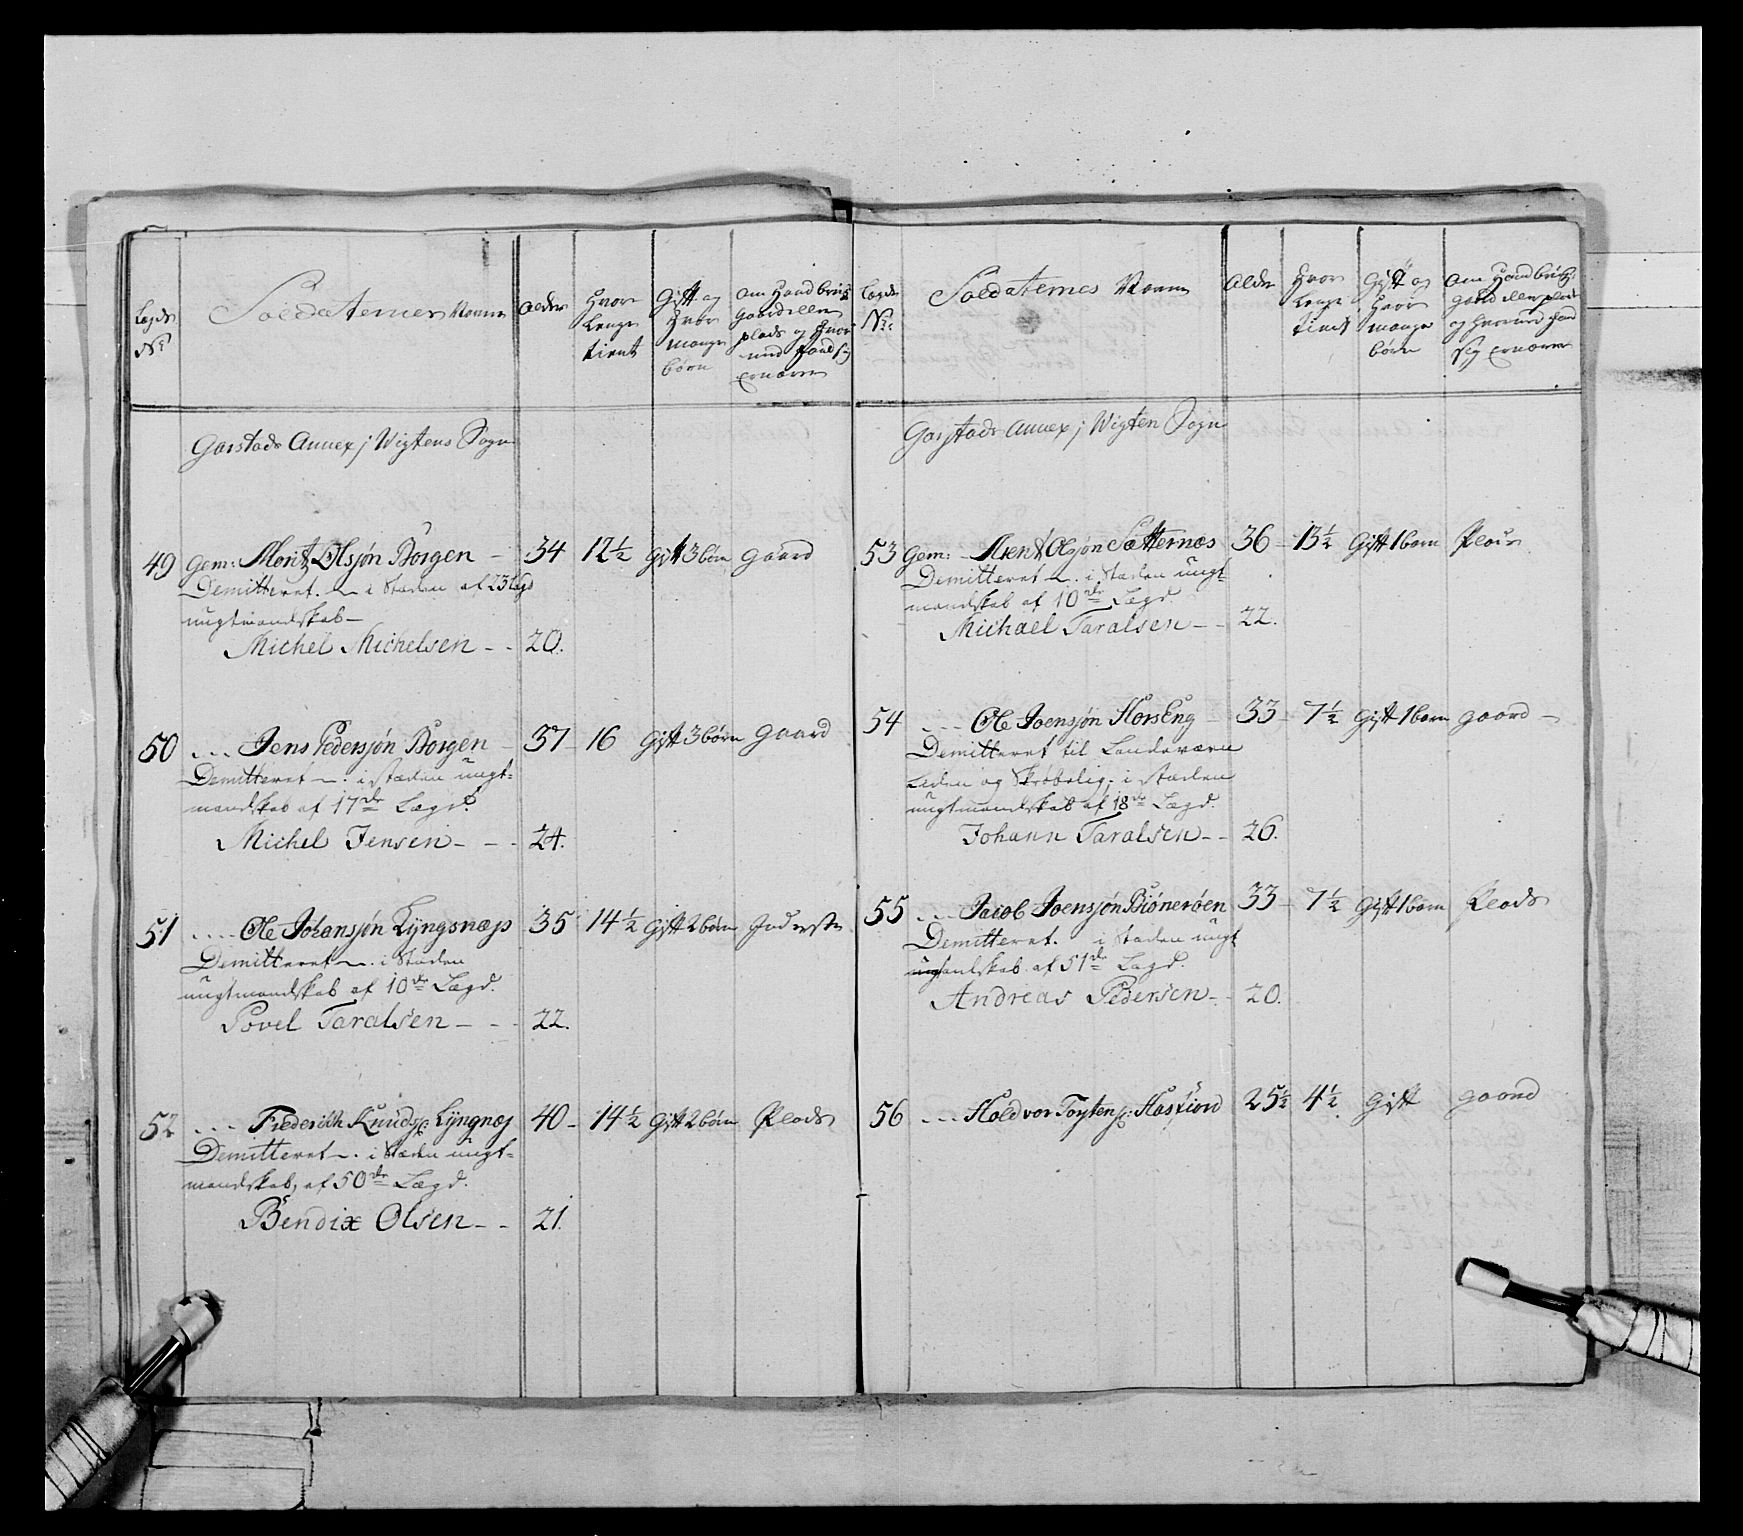 Lægds
No
Soldaternes Navne
Alder
Hvor
Længe
tient
Gift og
Hvor
mange
børn
Om Hand bruger
Gaard eller
plads og Hvor
med Hand sig
ernærer
Garstads Annex j Wigtens Sogn
49 Gem: Moritz Olsøn Borgen - 34 12½ gift 3 børn gaard
Demitteret. i Stæden af 23 Lægd
ungtmandskab -
Michel Michelsen - - 20.
50 ... Jens Pedersøn Borgen - 37 16 gift 3 børn gaard
Demitteret i Stæden ungt-
mandskab af 17de Lægd
Michel Jensen - - - 24.
51 .... Ole Johansøn Lÿngsnæs 35 14½ gift 2 børn Inderste
Demitteret i Stæden
ungtmandskab af 10de Lægd.
Povel Taralsen - - - 22.
52 ... Friderich Knuds: Lÿngnæs 40 - 14½ gift 2 børn Plads
Demitteret. i Stæden ungt-
mandskab, af 50de Lægd.
Bendix Olsen - - 21.
Lægds
No:
Soldaternes Navne
Alder
Hvor
Længe
tient
Gift og
Hvor
mange
børn
Om Hand bruger
gaard eller plads
og Hvormed Hand
sig ernærer
Garstads Annex j Wigten Sogn
53 Gem: Arent Olsøn Sætternæs 36 - 13½ gift 1 barn Plads
Demitteret i Stæden ungt-
mandskab af 10de Lægd.
Michael Taralsen - - 22.
54 .... Ole Joensøn HorsEng - 33 - 7½ gift 1 barn gaard -
Demitteret til Landeværn
Liden og Skrøbelig. i Stæden
ungtmandskab af 18de Lægd.
Johann Taralsen - - 26.
55 ... Jacob Joensøn Biønerøen 33 - 7½ gift 1 barn Plads
Demitteret. i Stæden ungt
mandskab af 51de Lægd.
Andreas Pedersen - - 20.
56 ... Holdvor Torstens: Hasfiord 25½ 4½ gift gaard